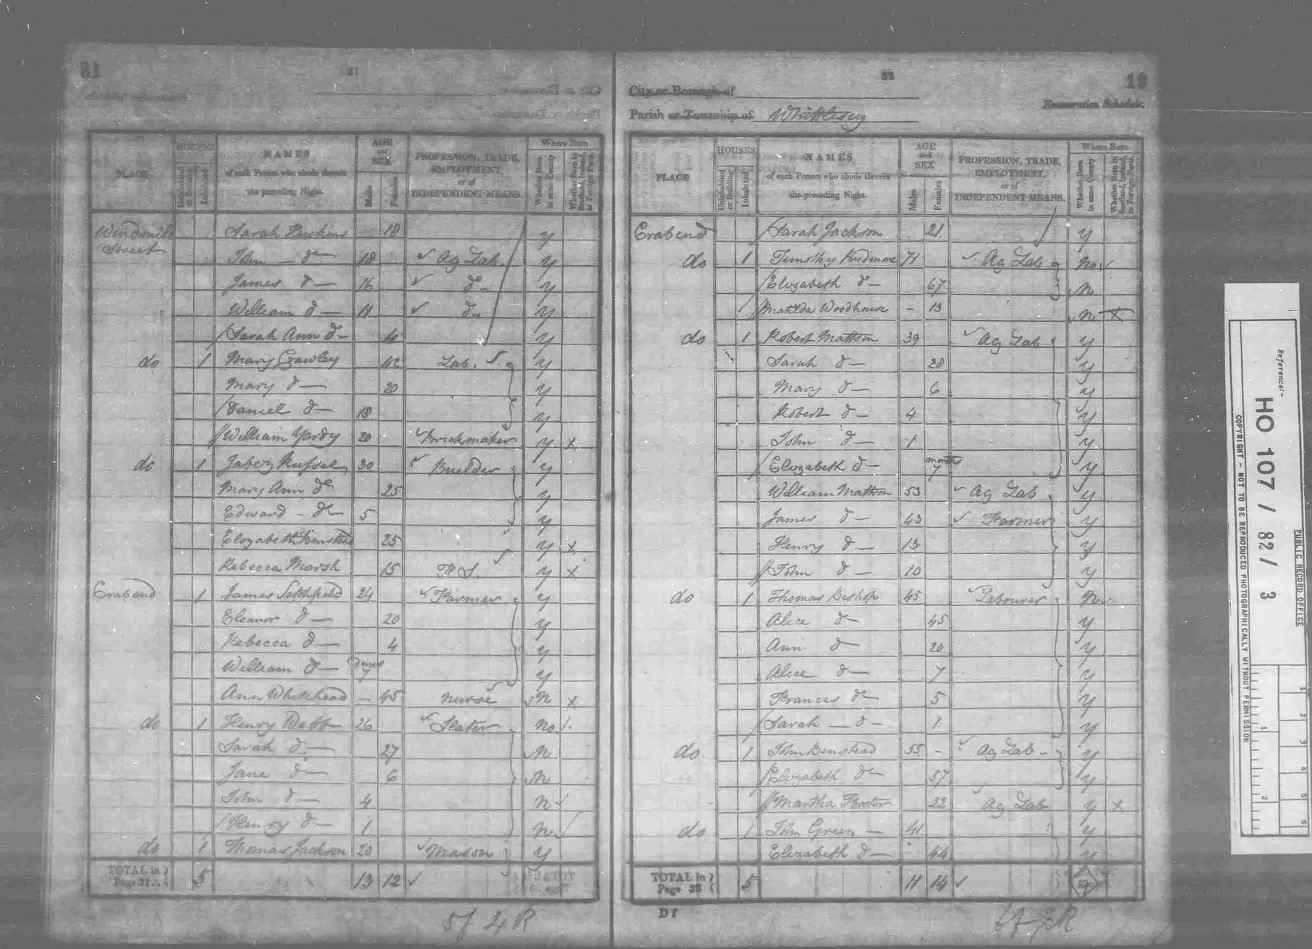 81
31
PLACE
HOUSES
Uninhabited or Building
Inhabited
NAMES
of each Person who abode therein the preceding Night.
AGE and SEX
Males
Females
PROFESSION, TRADE, EMPLOYMENT, or of INDEPENDENT MEANS.
Where Born
Whether Born in same County
Whether Born in Scotland, Ireland, or Foreign Parts.
Street Sarah 18 y
John do 18 Ag Lab y
James do 16 do y
William do 11 do y
Sarah Ann do y
do 1 Mary Crawley Lab. y
Mary do 20 y
Daniel do y
William Yardy 20 Brickmaker y x
do 1 Jabez Russel 30 Builder y
Mary Ann do 25 y
Edward do 5 y
Elizabeth 25 y x
Rebecca Marsh 15 F.S. y x
1 James 24 Farmer y
Eleanor do 20 y
Rebecca do 4 y
William do 7 y
Ann Whitehead 45 nurse N x
do 1 Henry 26 Slater no
Sarah do 27 N
Jane do 6 N
John do 4 N
Henry do 1 N
do 1 Thomas Jackson 20 Mason y
TOTAL in Page 31 5 13 12
32
19
City or Borough of
Enumeration Schedule.
Parish or Township of Whittlesey
PLACE
HOUSES
Uninhabited or Building
Inhabited
NAMES
of each Person who abode therein the preceding Night.
AGE and SEX
Males
Females
PROFESSION, TRADE, EMPLOYMENT, or of INDEPENDENT MEANS.
Where Born
Whether Born in same County
Whether Born in Scotland, Ireland, or Foreign Parts.
Sarah Jackson 21 y
do 1 Timothy 71 Ag Lab no
Elizabeth do 67 n
Matilda Woodhouse - 13 n x
do 1 Robert Mattson 39 Ag Lab y
Sarah do 28 y
Mary do 6 y
Robert do 4 y
John do 1 y
Elizabeth do 7 months y
William Mattson 53 Ag Lab y
James do 43 Farmer y
Henry do 13 y
John do 10 y
do 1 Thomas Bishop 45 Labourer No
Alice do 45 y
Ann do 20 y
Alice do 7 y
Frances do 5 y
Sarah do 1 y
do 1 John Benstead 55 - Ag Lab y
Elizabeth do 57 y
Martha 22 Ag Lab y x
do 1 John Green 41 y
Elizabeth do 44 y
TOTAL in Page 32 5 11 14
D f
Reference:-
HO 107 / 82 / 3
PUBLIC RECORD OFFICE
COPYRIGHT - NOT TO BE REPRODUCED PHOTOGRAPHICALLY WITHOUT PERMISSION